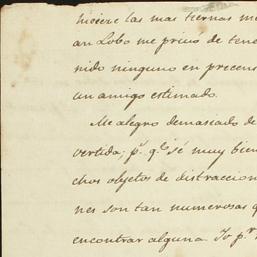 hiciere las mas tiernas me
an Lobo me privo de tene
nido ninguno en precens
un amigo estimado.
Me alegro demaseado de
vertida; p.r q.e sé muy bien
chos objetos de distraccion
nes son tan numerosas q
encontrar alguna. Yo p.r